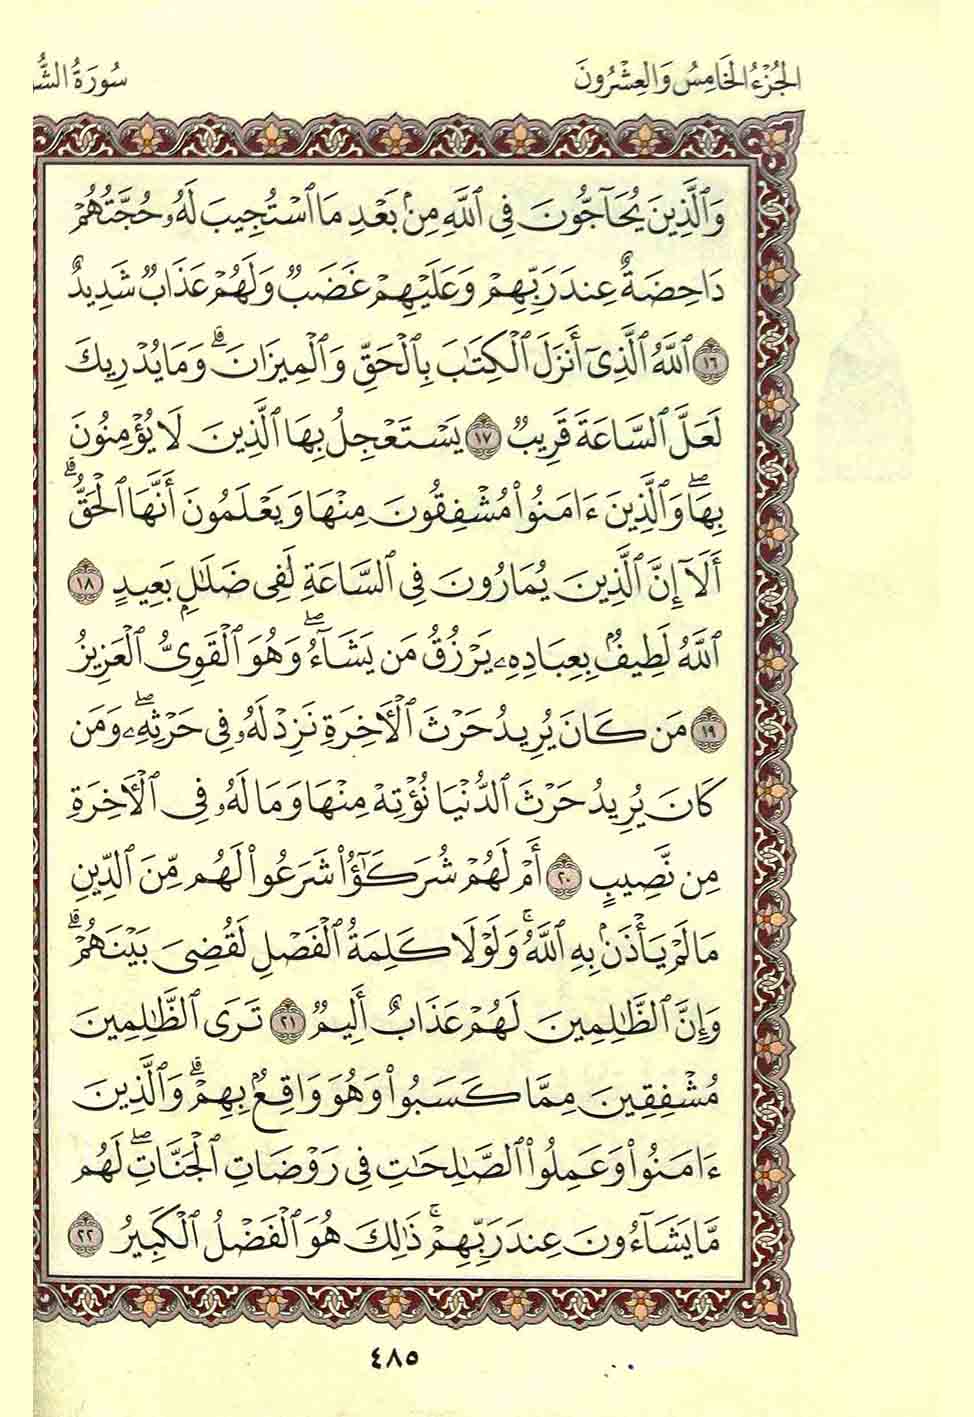 الجُزْءُ الخَامِسُ وَالعِشْرُونَ
سُورَةُ
وَٱلَّذِينَ يُحَآجُّونَ فِى ٱللَّهِ مِنۢ بَعْدِ مَا ٱسْتُجِيبَ لَهُۥ حُجَّتُهُمْ
دَاحِضَةٌ عِندَ رَبِّهِمْ وَعَلَيْهِمْ غَضَبٌ وَلَهُمْ عَذَابٌ شَدِيدٌ
١٦ ٱللَّهُ ٱلَّذِىٓ أَنزَلَ ٱلْكِتَٰبَ بِٱلْحَقِّ وَٱلْمِيزَانَ ۗ وَمَا يُدْرِيكَ
لَعَلَّ ٱلسَّاعَةَ قَرِيبٌ ١٧ يَسْتَعْجِلُ بِهَا ٱلَّذِينَ لَا يُؤْمِنُونَ
بِهَا ۖ وَٱلَّذِينَ ءَامَنُوا۟ مُشْفِقُونَ مِنْهَا وَيَعْلَمُونَ أَنَّهَا ٱلْحَقُّ ۗ
أَلَآ إِنَّ ٱلَّذِينَ يُمَارُونَ فِى ٱلسَّاعَةِ لَفِى ضَلَٰلٍۭ بَعِيدٍ ١٨
ٱللَّهُ لَطِيفٌۢ بِعِبَادِهِۦ يَرْزُقُ مَن يَشَآءُ ۖ وَهُوَ ٱلْقَوِىُّ ٱلْعَزِيزُ
١٩ مَن كَانَ يُرِيدُ حَرْثَ ٱلْأَخِرَةِ نَزِدْ لَهُۥ فِى حَرْثِهِۦ ۖ وَمَن
كَانَ يُرِيدُ حَرْثَ ٱلدُّنْيَا نُؤْتِهِۦ مِنْهَا وَمَا لَهُۥ فِى ٱلْأَخِرَةِ
مِن نَّصِيبٍ ٢٠ أَمْ لَهُمْ شُرَكَٰٓؤُا۟ شَرَعُوا۟ لَهُم مِّنَ ٱلدِّينِ
مَا لَمْ يَأْذَنۢ بِهِ ٱللَّهُ ۚ وَلَوْلَا كَلِمَةُ ٱلْفَصْلِ لَقُضِىَ بَيْنَهُمْ ۗ
وَإِنَّ ٱلظَّٰلِمِينَ لَهُمْ عَذَابٌ أَلِيمٌ ٢١ تَرَى ٱلظَّٰلِمِينَ
مُشْفِقِينَ مِمَّا كَسَبُوا۟ وَهُوَ وَاقِعٌۢ بِهِمْ ۗ وَٱلَّذِينَ
ءَامَنُوا۟ وَعَمِلُوا۟ ٱلصَّٰلِحَٰتِ فِى رَوْضَاتِ ٱلْجَنَّاتِ ۖ لَهُم
مَّا يَشَآءُونَ عِندَ رَبِّهِمْ ۚ ذَٰلِكَ هُوَ ٱلْفَضْلُ ٱلْكَبِيرُ ٢٢
٤٨٥